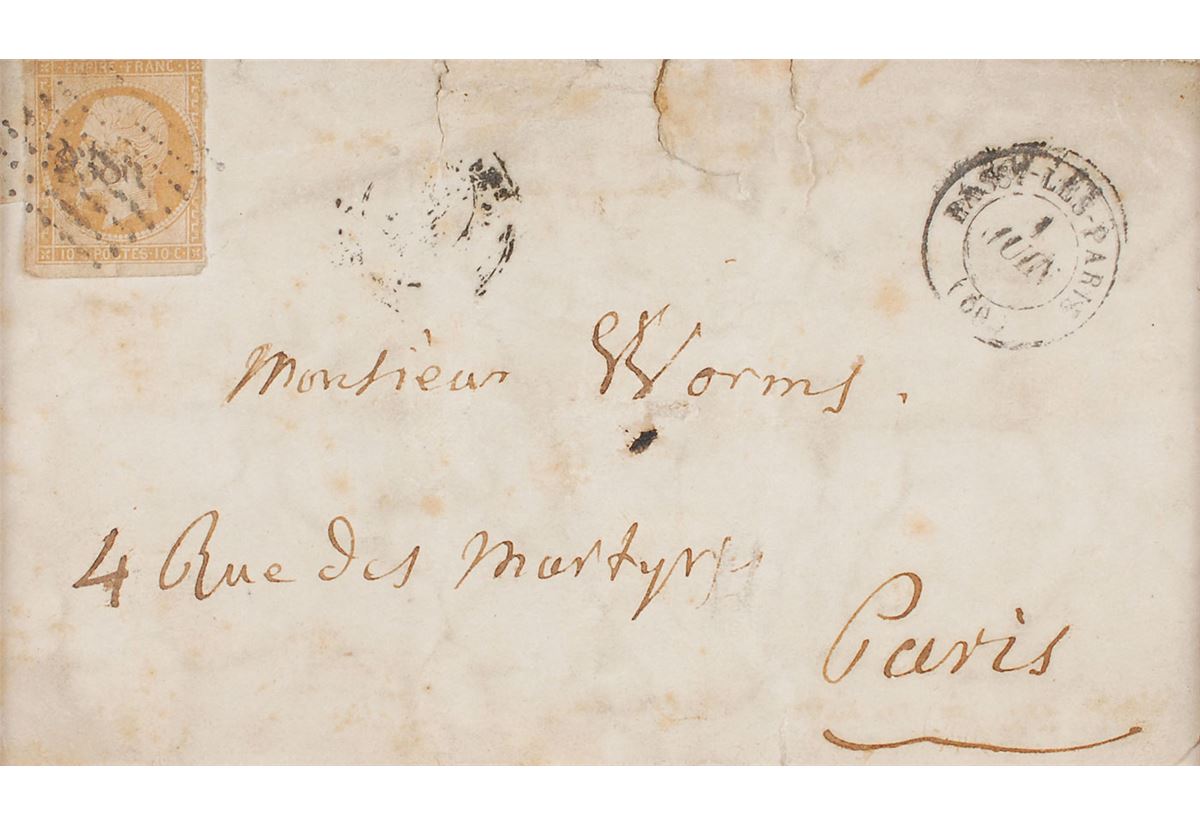 EMPIRE FRANC
10 C POSTES 10 C
PASSY-LES-PARIS
1
JUIN
(60)
Monsieur Worms.
4 Rue des Martyrs
Paris